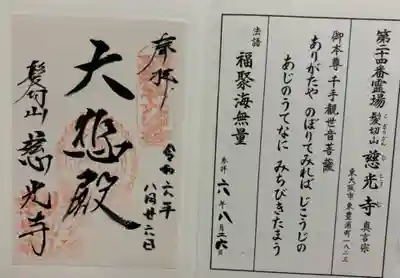 第二十四番霊場
髪切山 慈光寺 真言宗
こぎりざん じこうじ
東大阪市東豊浦町一八二三
御本尊 千手観世音菩薩
ありがたや のぼりてみれば じこうじの
あじのうてなに みちびきたまう
法語
福聚海無量
参拝 六年八月二六日
奉拝
令和六年
八月廿六日
大悲殿
髪切山 慈光寺